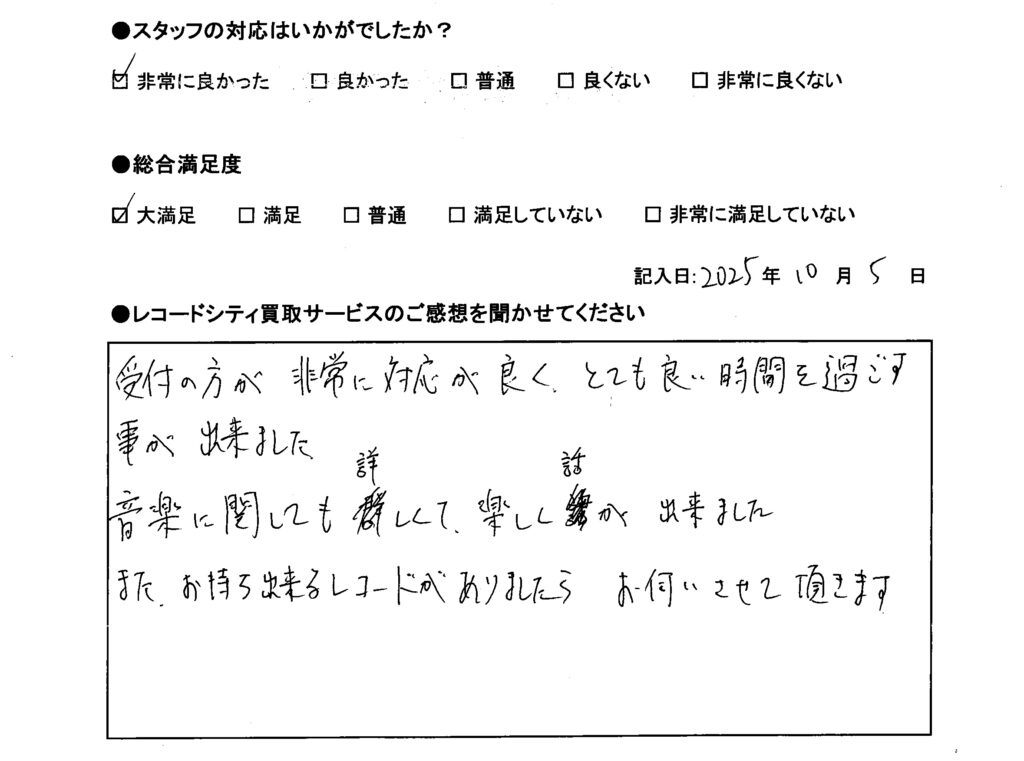 ●スタッフの対応はいかがでしたか？
☑ 非常に良かった □ 良かった □ 普通 □ 良くない □ 非常に良くない
●総合満足度
☑ 大満足 □ 満足 □ 普通 □ 満足していない □ 非常に満足していない
記入日:2025年 10 月 5 日
●レコードシティ買取サービスのご感想を聞かせてください
受付の方が 非常に対応が良く、とても良い時間を過ごす
事が 出来ました
音楽に関しても詳しくて、楽しく話が 出来ました
また、お持ち出来るレコードがありましたら お伺いさせて頂きます